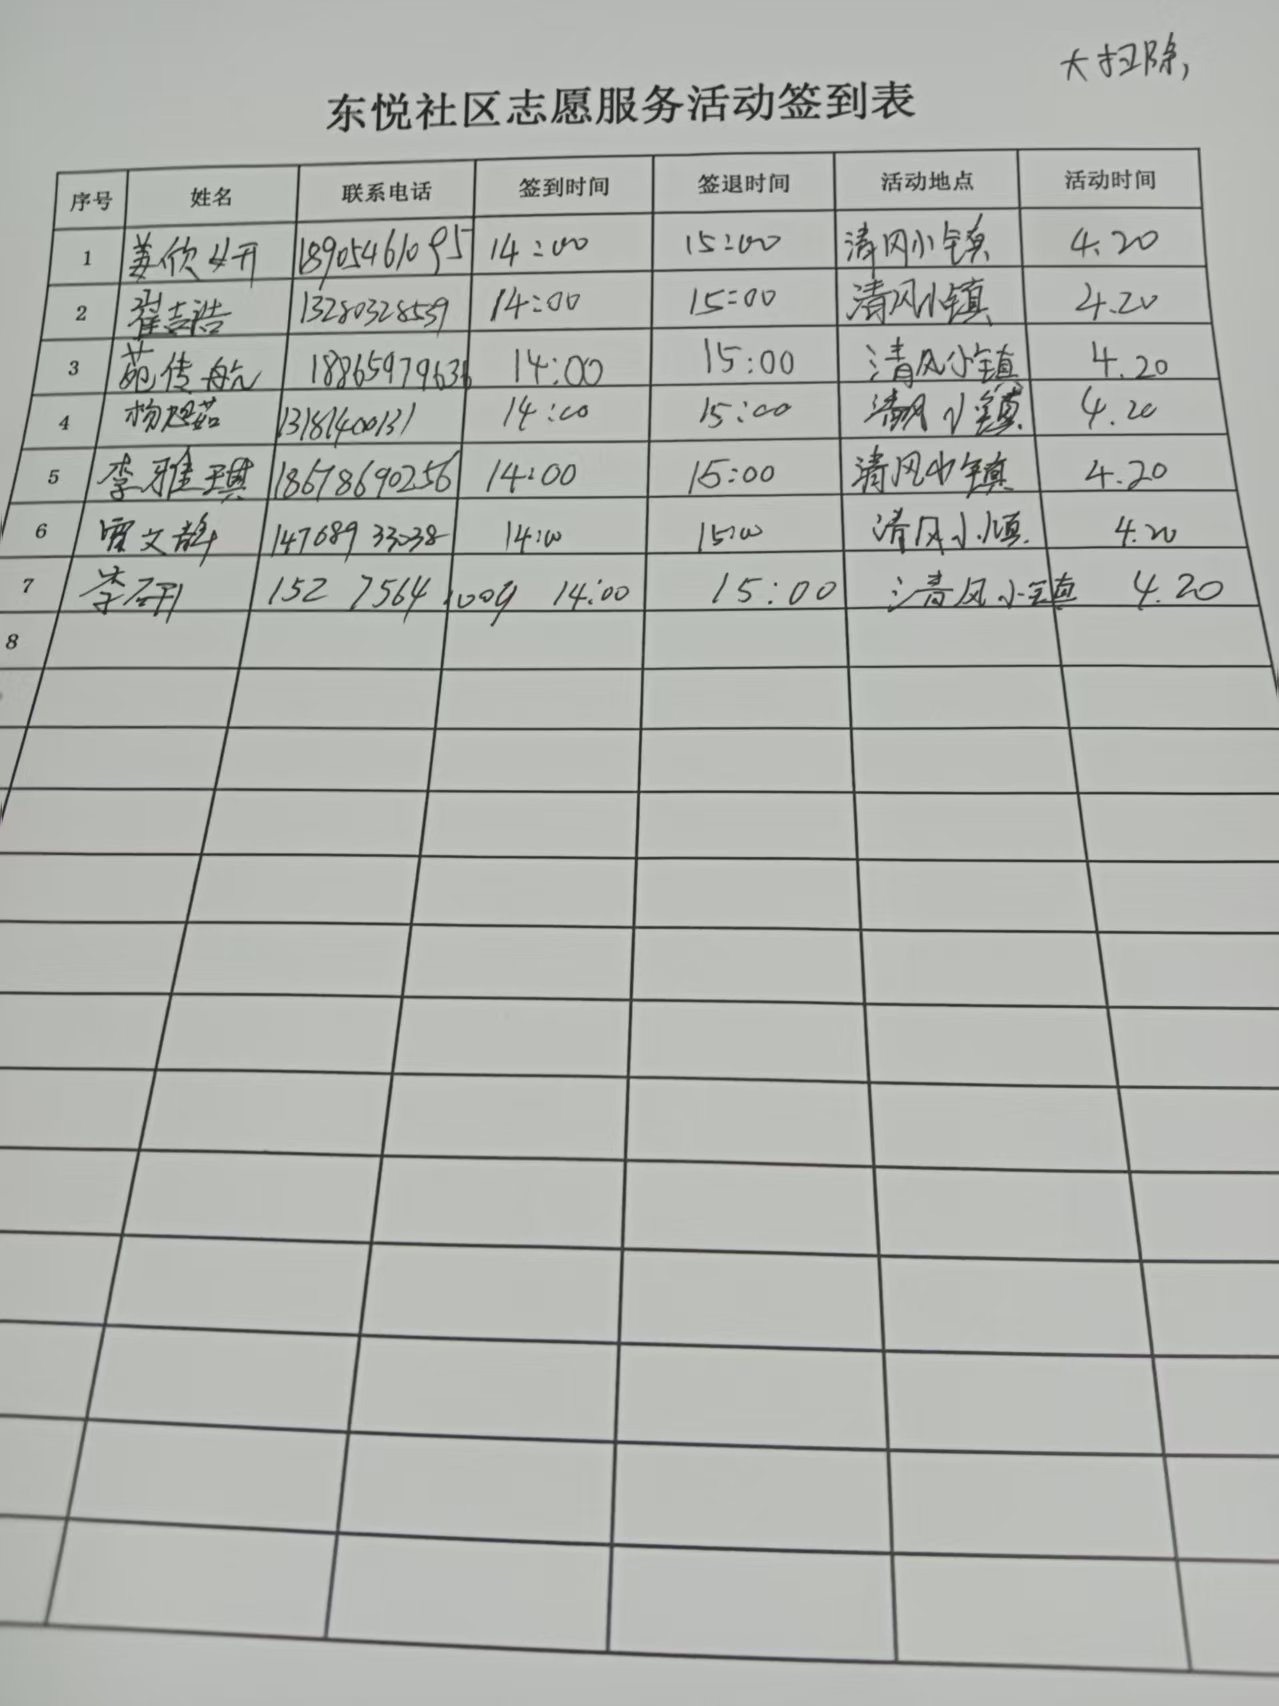 大扫除,
东悦社区志愿服务活动签到表
序号 姓名 联系电话 签到时间 签退时间 活动地点 活动时间
1 姜欣妍 18905461095 14:00 15:00 清风小镇 4.20
2 翟喆浩 13280328559 14:00 15:00 清风小镇 4.20
3 苑传航 1886597963 14:00 15:00 清风小镇 4.20
4 杨 茹 13181400131 14:00 15:00 清风小镇 4.20
5 李雅琪 18678690256 14:00 15:00 清风小镇 4.20
6 文静 14768933038 14:00 15:00 清风小镇 4.20
7 李 152 7564 1009 14:00 15:00 清风小镇 4.20
8